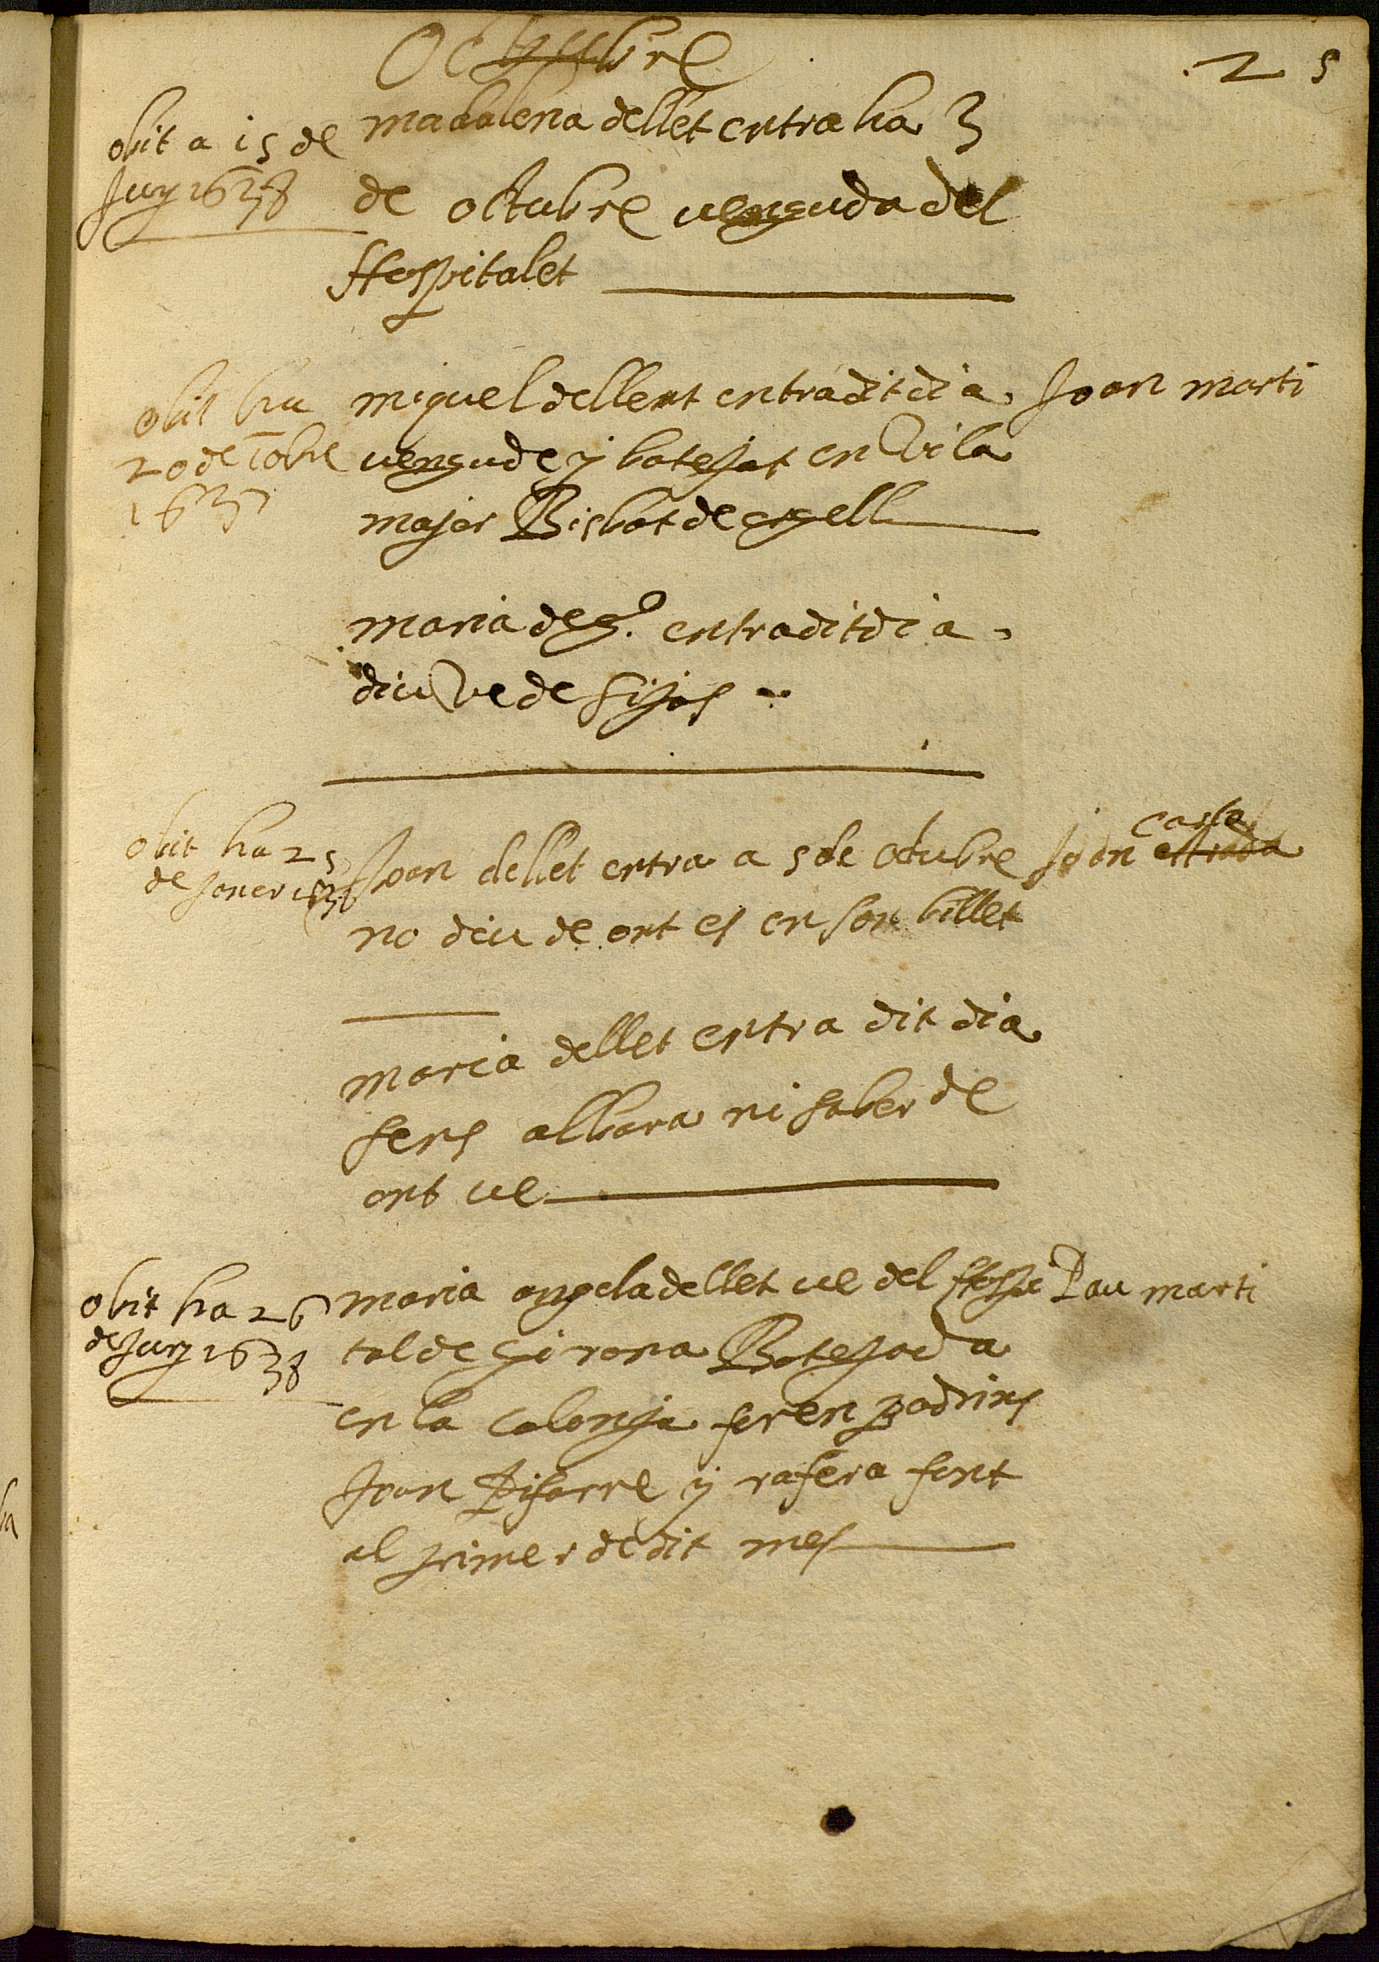 Octubre
25
obit a 15 de
Juny 1638
madalena dellet entra ha 3
de octubre venguda del
Hospitalet
obit ha
20 de 10bre
1637
miquel dellent entra dit dia
vengude y batejat en Vila
major Bisbat de
Joan marti
maria de g.ª entra dit dia
diu ve de sijas
obit ha 25
de Janer
Joan dellet entra a 5 de Octubre
no diu de ont es en son billet
Joan estrada
Casta
maria dellet entra dit dia
sens albara ni saber de
ont ve
obit ha 26
de Juny 1638
maria angela dellet ve del Hospi
tal de Girona Batejada
en la Calonja foren padrins
Joan Pisarre y rafela font
al primer de dit mes
Pau marti